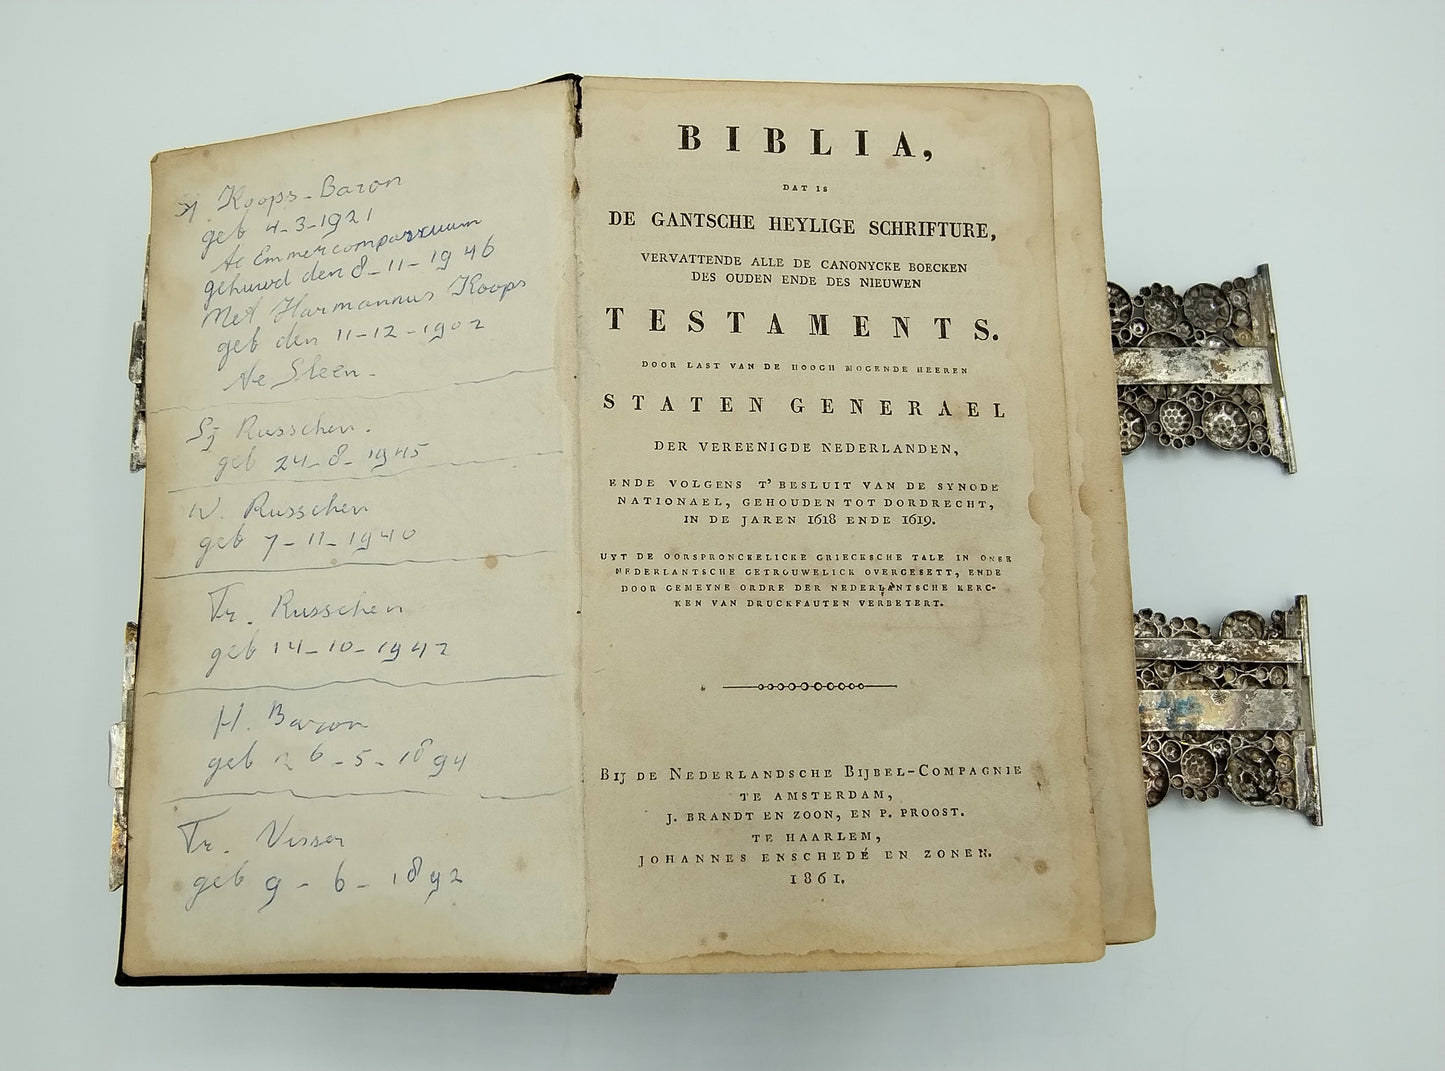 Koops-Baron
geb 4-3-1921
te Emmercompascuum
gehuwd den 8-11-1946
Met Harmannus Koops
geb den 11-12-1902
te Sleen.
Sj Russchen.
geb 24-8-1945
W. Russchen
geb 7-11-1940
Tr. Russchen
geb 14-10-1942
H. Baron
geb 26-5-1894
Tr. Visser
geb 9-6-1892
BIBLIA,
DAT IS
DE GANTSCHE HEYLIGE SCHRIFTURE,
VERVATTENDE ALLE DE CANONYCKE BOECKEN
DES OUDEN ENDE DES NIEUWEN
TESTAMENTS.
DOOR LAST VAN DE HOOGH MOGENDE HEEREN
STATEN GENERAEL
DER VEREENIGDE NEDERLANDEN,
ENDE VOLGENS T' BESLUIT VAN DE SYNODE
NATIONAEL, GEHOUDEN TOT DORDRECHT,
IN DE JAREN 1618 ENDE 1619.
UYT DE OORSPRONCKELICKE GRIECKSCHE TALE IN ONSE
NEDERLANTSCHE GETROUWELICK OVERGESETT, ENDE
DOOR GEMEYNE ORDRE DER NEDERLANTSCHE KERC-
KEN VAN DRUCKFAUTEN VERBETERT.
BIJ DE NEDERLANDSCHE BIJBEL-COMPAGNIE
TE AMSTERDAM,
J. BRANDT EN ZOON, EN P. PROOST.
TE HAARLEM,
JOHANNES ENSCHEDÉ EN ZONEN.
1861.